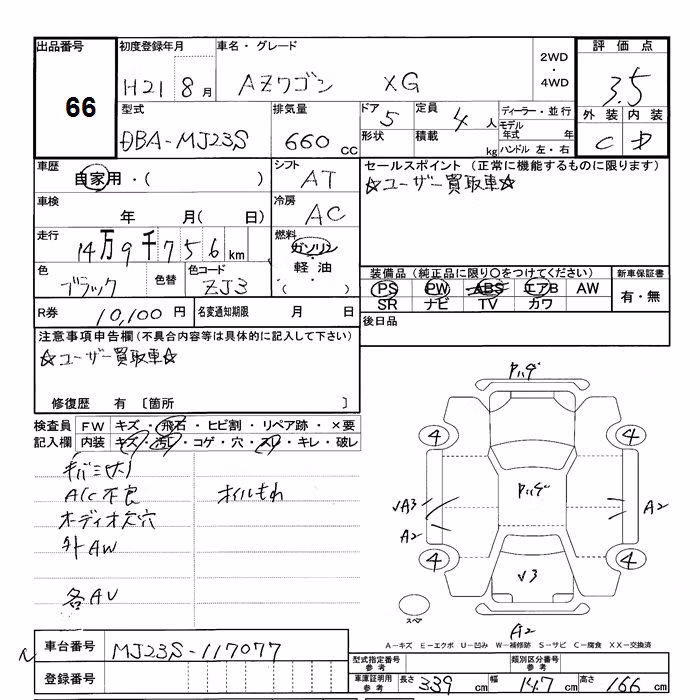 出品番号 初度登録年月 車名・グレード 2WD・4WD 評価点
66 H21 8月 AZワゴン XG 3.5
型式 排気量 ドア 5 定員 4人 ディーラー・並行 外装 内装
DBA-MJ23S 660cc 形状 積載 kg モデル年式 年式 C D
ハンドル 左・右
車歴 シフト セールスポイント (正常に機能するものに限ります)
自家用・( ) AT ☆ユーザー買取車☆
車検 冷房
年 月( 日) AC
走行 燃料
14万9千756km ガソリン
色 色替 色コード 軽油 装備品 (純正品に限り〇をつけてください) 新車保証書
ブラック ZJ3 ( ) PS PW ABS エアB AW 有・無
SR ナビ TV カワ
R券 10,100円 名変通知期限 月 日 後日品
注意事項申告欄(不具合内容等は具体的に記入して下さい)
☆ユーザー買取車☆
修復歴 有 〔箇所 〕
検査員 FW キズ・飛石・ヒビ割・リペア跡・×要
記入欄 内装 キズ・汚れ・コゲ・穴・スレ・キレ・破レ
A/C不良 オイルもれ
オーディオ欠穴
外AW
各AU
ハゲ
4 4
ハゲ
√A3 A2
A2
4 4
√3
スペア
A2
A-キズ E-エクボ U-凹み W-補修跡 S-サビ C-腐食 XX-交換済
車台番号 MJ23S-117077
登録番号
型式指定番号 参考 類別区分番号 参考
車庫証明用 参考 長さ 339 cm 幅 147 cm 高さ 166 cm